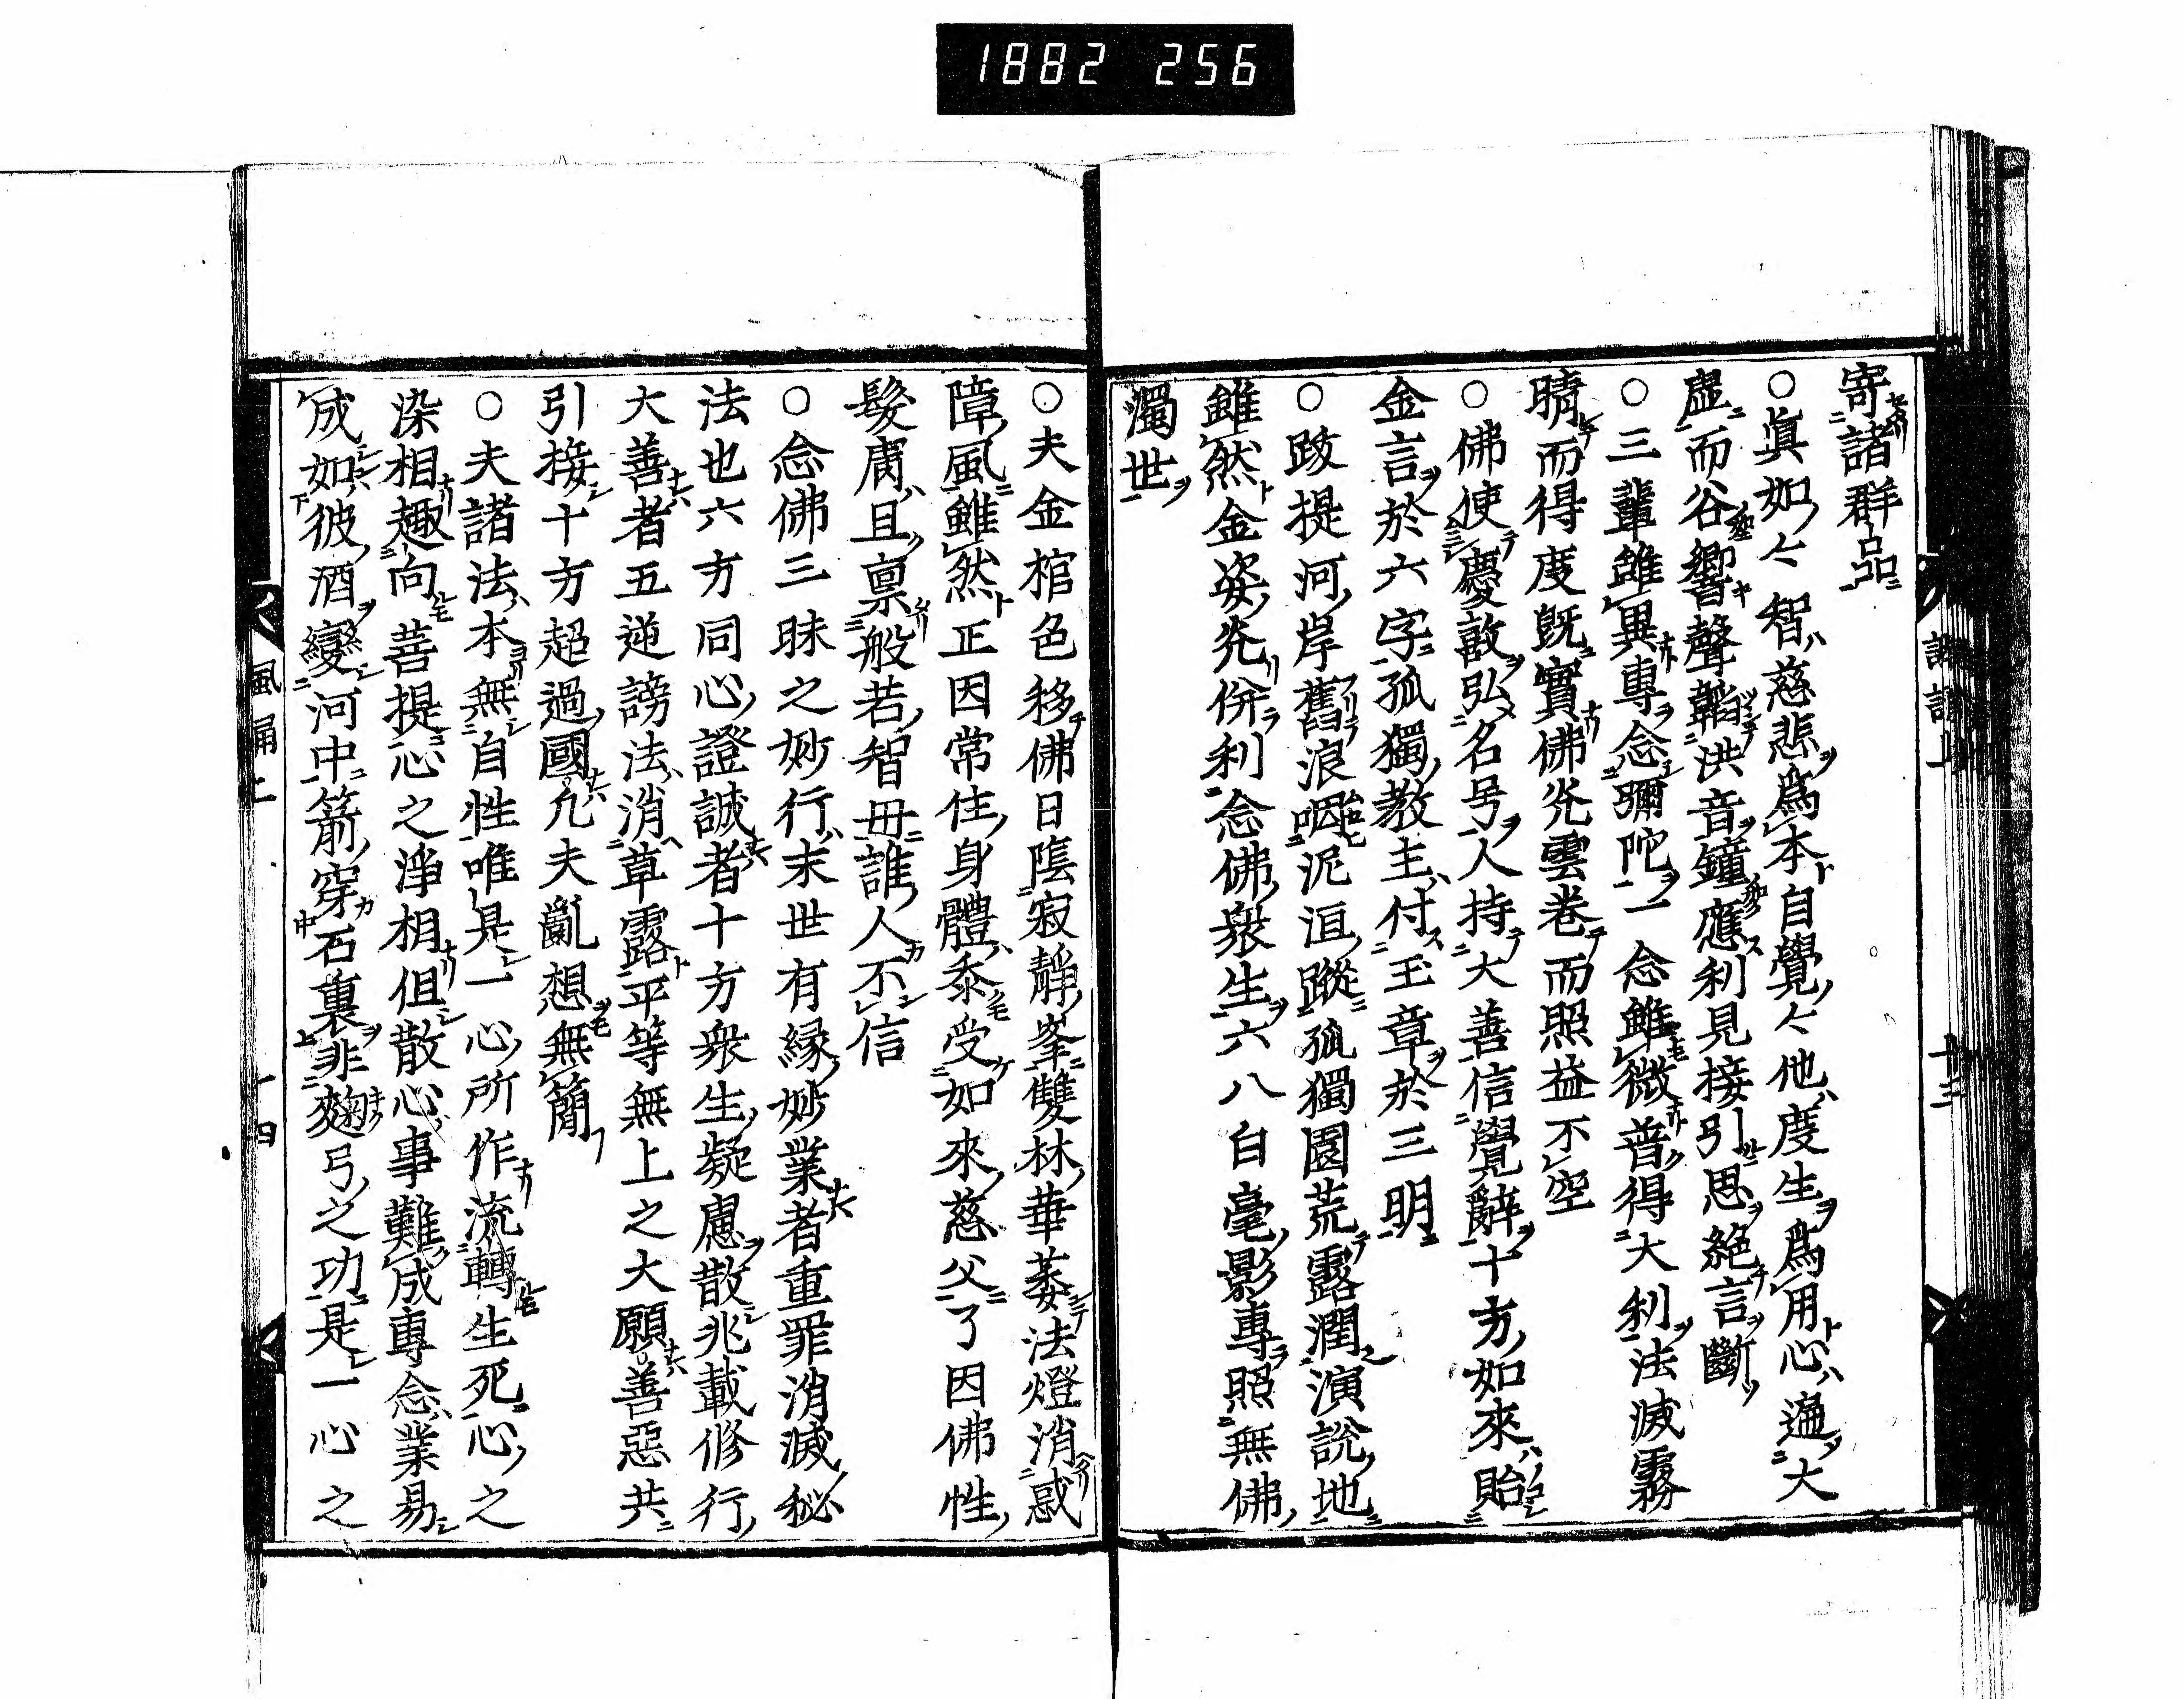 1882 256
寄諸群品
○眞如々智慈悲爲本自覺々他度生爲用心遍大
虛而谷響聲韜洪音鐘應利見接引思絕言斷
○三輩雖異專念彌陀一念雖微普得大利法滅霧
晴而得度既實佛光雲卷而照益不空
○佛使慶敼弘名号人持大善信覺辭十方如來貽
金言於六字孤獨教主付玉章於三明
○跋提河岸舊浪咽泥洹蹤孤獨園荒露潤演說地
雖然金姿光併利念佛衆生六八白毫影專照無佛
濁世
○夫金棺色移佛日隂寂靜峯雙林華萎法燈消惑
障風雖然正因常住身體忝受如來慈父了因佛性
髮膚且禀般若智毋誰人不信
○念佛三昧之妙行末世有縁妙業者重罪消滅秘
法也六方同心證誠者十方衆生凝慮散兆載修行
大善者五逆謗法消草露平等無上之大願善惡共
引接十方超過國凢夫亂想無簡
○夫諸法本無自性唯是一心所作流轉生死心之
染相趣向菩提心之淨相但散心事難成專念業易
成如彼酒變河中箭穿石裏非麹弓之功是一心之
風誦上
十四
十三